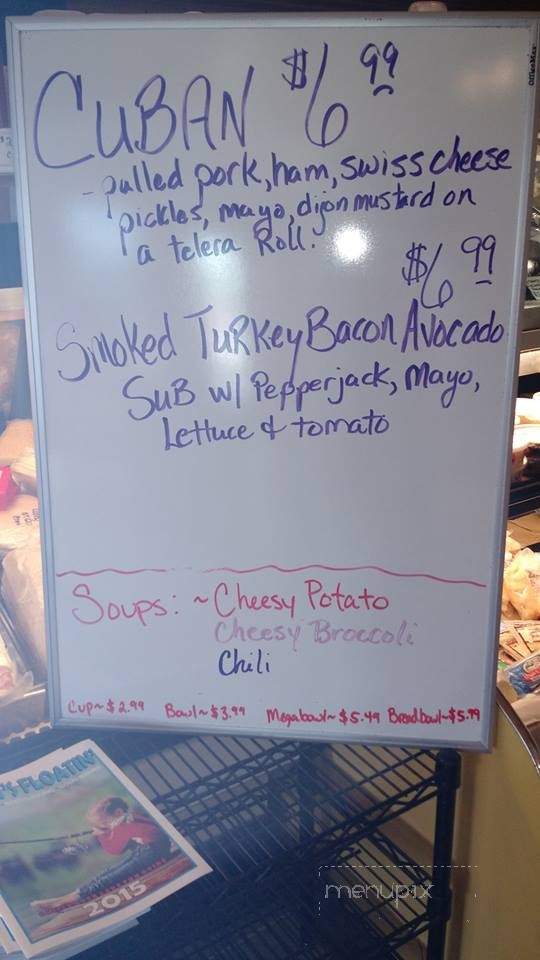 OfficeMax
CUBAN $6 99
- pulled pork, ham, swiss cheese
pickles, mayo, dijon mustard on
a telera Roll.
$6 99
Smoked Turkey Bacon Avocado
Sub w/ Pepperjack, Mayo,
Lettuce & tomato
Soups: ~ Cheesy Potato
Cheesy Broccoli
Chili
Cup~$2.99 Bowl~$3.99 Megabowl~$5.49 Breadbowl~$5.99
FLOATIN'
2015
menupix